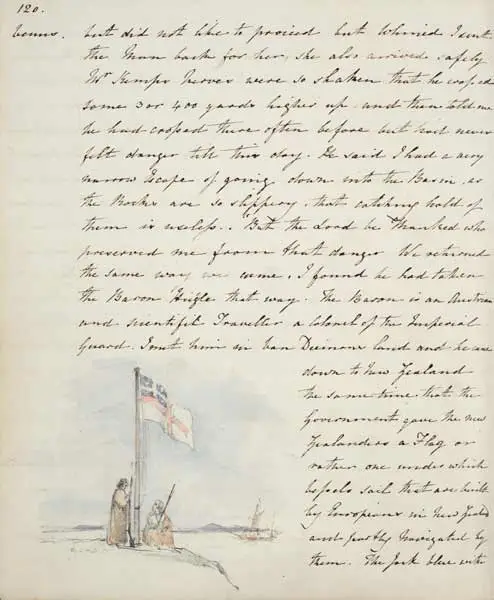 120.
venus. but did not like to proceed but whined I sent
the Man back for her, she also arrived safely
Mr Kemps Nerves were so shaken that he crossed
some 3 or 400 yards higher up and then told me
he had crossed there often before but had never
felt danger till this day. He said I had a very
narrow Escape of going down into the Basin, as
the Rocks are so slippery, that catching hold of
them is useless. But the Lord be Thanked who
preserved me from that danger We returned
the same way we came. I found he had taken
the Baron Hügle that way. The Baron is an Austrian
and scientifik Traveller a Colonel of the Imperial
Guard. I met him in Van Diemans land and he came
down to New Zealand
the same time that the
Government gave the new
Zealanders a Flag or
rather one under which
vessels sail that are built
by Europeans in New Zeald
and partly Navigated by
them. The Jack blue with